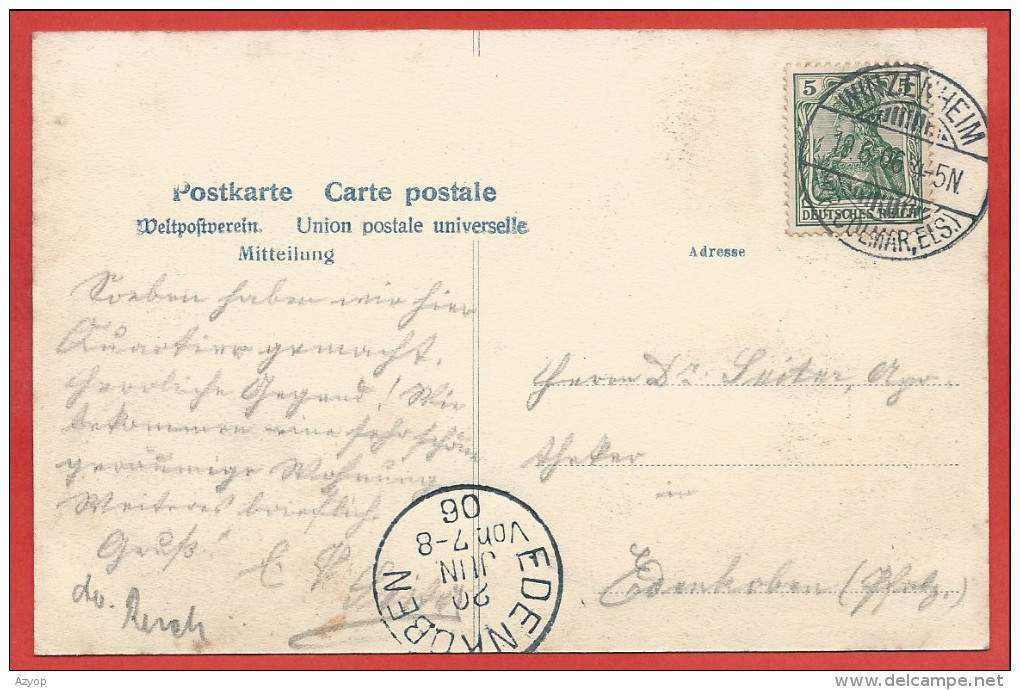 Postkarte Carte postale
Weltpostverein. Union postale universelle
Mitteilung
Adresse
5 5
DEUTSCHES REICH
WINZENHEIM
19.6.06 4-5N.
COLMAR, ELS.)
Soeben haben wir hier
Quartier gemacht.
Herrliche Gegend! Wir
bekommen eine sehr schöne
geräumige Wohnung
Weiteres brieflich.
Gruß!
Herrn Dr. Seiter, Apo
theker
in
Edenkoben (Pfalz.)
EDENKOBEN
20
JUN
Vor. 7-8
06
Azyop
delcampe.net